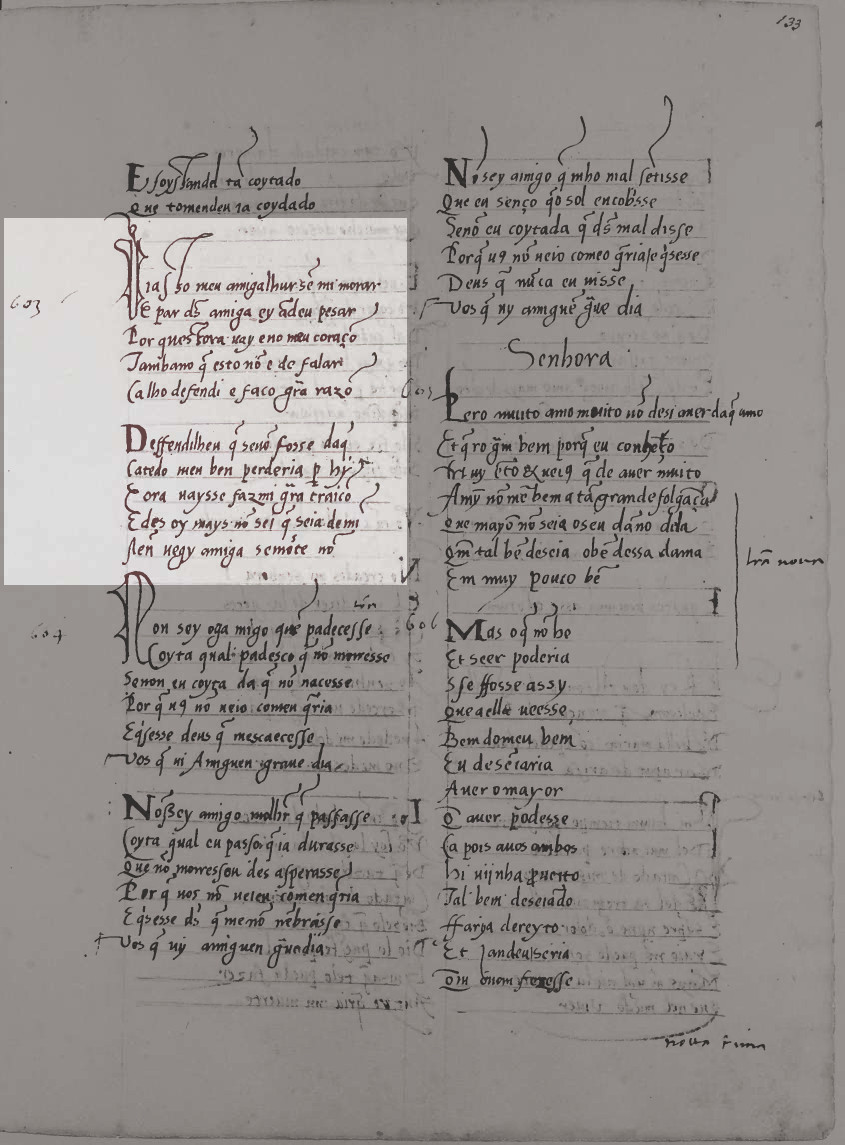 133
E foyssandel ta coytado
Que tomendeu ia coydado
603
Fiasso meu amigalhur sẽ mi morar
E par ds̄ amiga ey ādeu pesar
Por que sora uay eno meu coraçō
Tambano q̄ esto nō e de falar
Ca lho defendi e faco gr̄a razō
Deffendilheu q̄ senō fosse daq̄
Ca tedo meu ben perderia p hy
E ora uaysse fazmi gr̄a traicō
E des oy mays nō sei q̄ seia demi
nen uegy amiga se mōte nō
604
Non sey oga migo que padecesse
Coyta qual padesco q̄ nō moresse
Senon eu coyta da q̄ nō nacesse
Por q̄ u9 nō ueio comeu q̄ria
E q̄sesse deus q̄ mescaecesse
Vos q̄ ui Amiguen graue dia
Nō ssey amigo molhr̄ q̄ passasse
Coyta qual eu passo q̄ ia durasse
Que nō moresse ou desasperasse
Por q̄ uos nō ueieu comen q̄ria
E q̄sesse ds̄ q̄ me nō nēbrasse
Vos q̄ uy amiguen gūe dia
Nō sey amigo q̄ mho mal sētisse
Que eu senço q̄o sol encobsse
Senō eu coytada q̄ ds̄ mal disse
Porq̄ u9 nō ueio comeo q̄ria e q̄sesse
Deus q̄ nūca eu uisse
Vos q̄ uy amiguē gūe dia
Senhora
605
Pero muito amo muito nō desi auer da q̄ amo
Et q̄ro gm̄ bem porq̄ eu conheto
q̄ de auer muito
Amȳ nō me bem a tā grande folgāça
Que mayō nō seia o seu dāno dela
Qm̄ tal bē deseia obē dessa dama
Em muy pouco bē
606
Mas oq̄ nō he
Et seer poderia
Sse ffosse assy
Que a ella ueesse
Bem do meu bem
Eu deseiaria
Auer o mayor
Q auer podesse
Ca pois auos ambos
hi uijnha pueito
Tal bem deseiādo
ffarya dereyto
Et Sandeu seria
Qm̄ o nom fezesse
noua rima